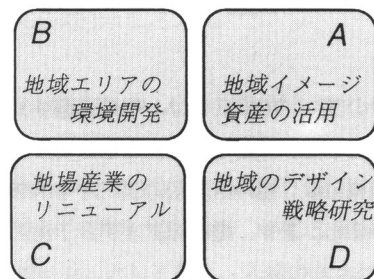 B
地域エリアの
環境開発
A
地域イメージ
資産の活用
地場産業の
リニューアル
C
地域のデザイン
戦略研究
D